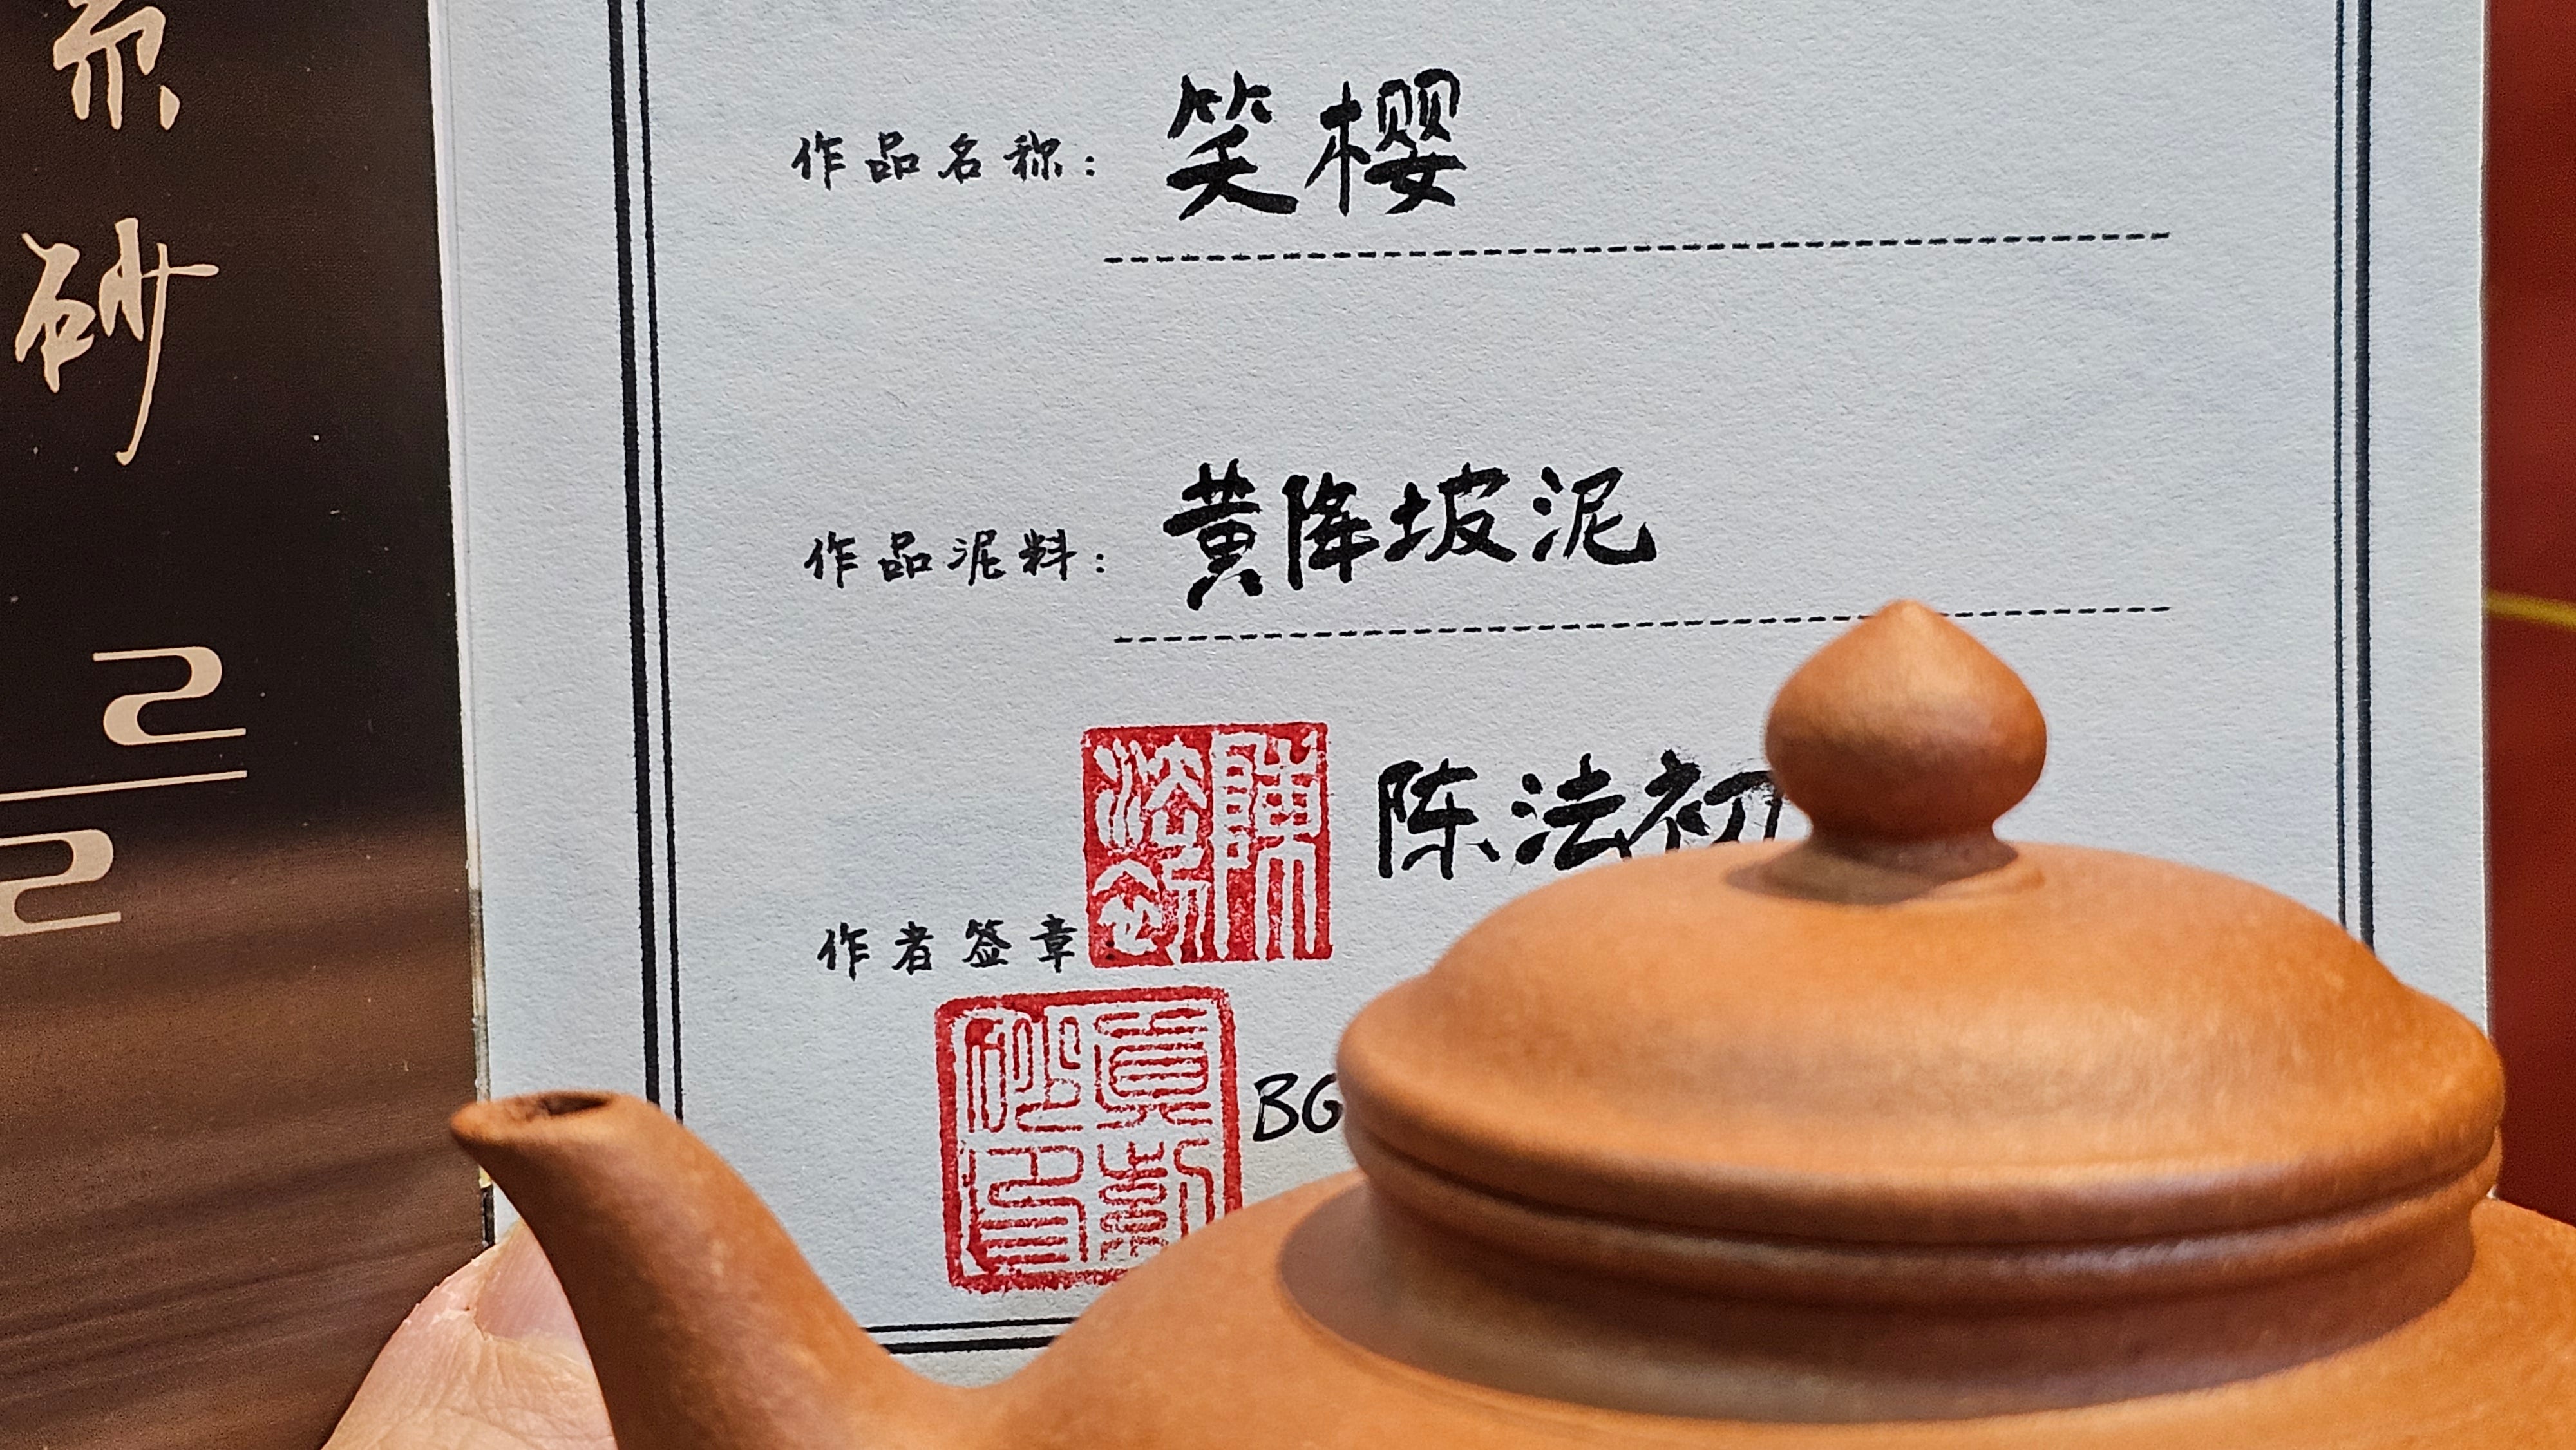 紫
砂
作品名称：笑樱
作品泥料：黄降坡泥
陳法初
陈法初
作者签章
真紫砂印
BG